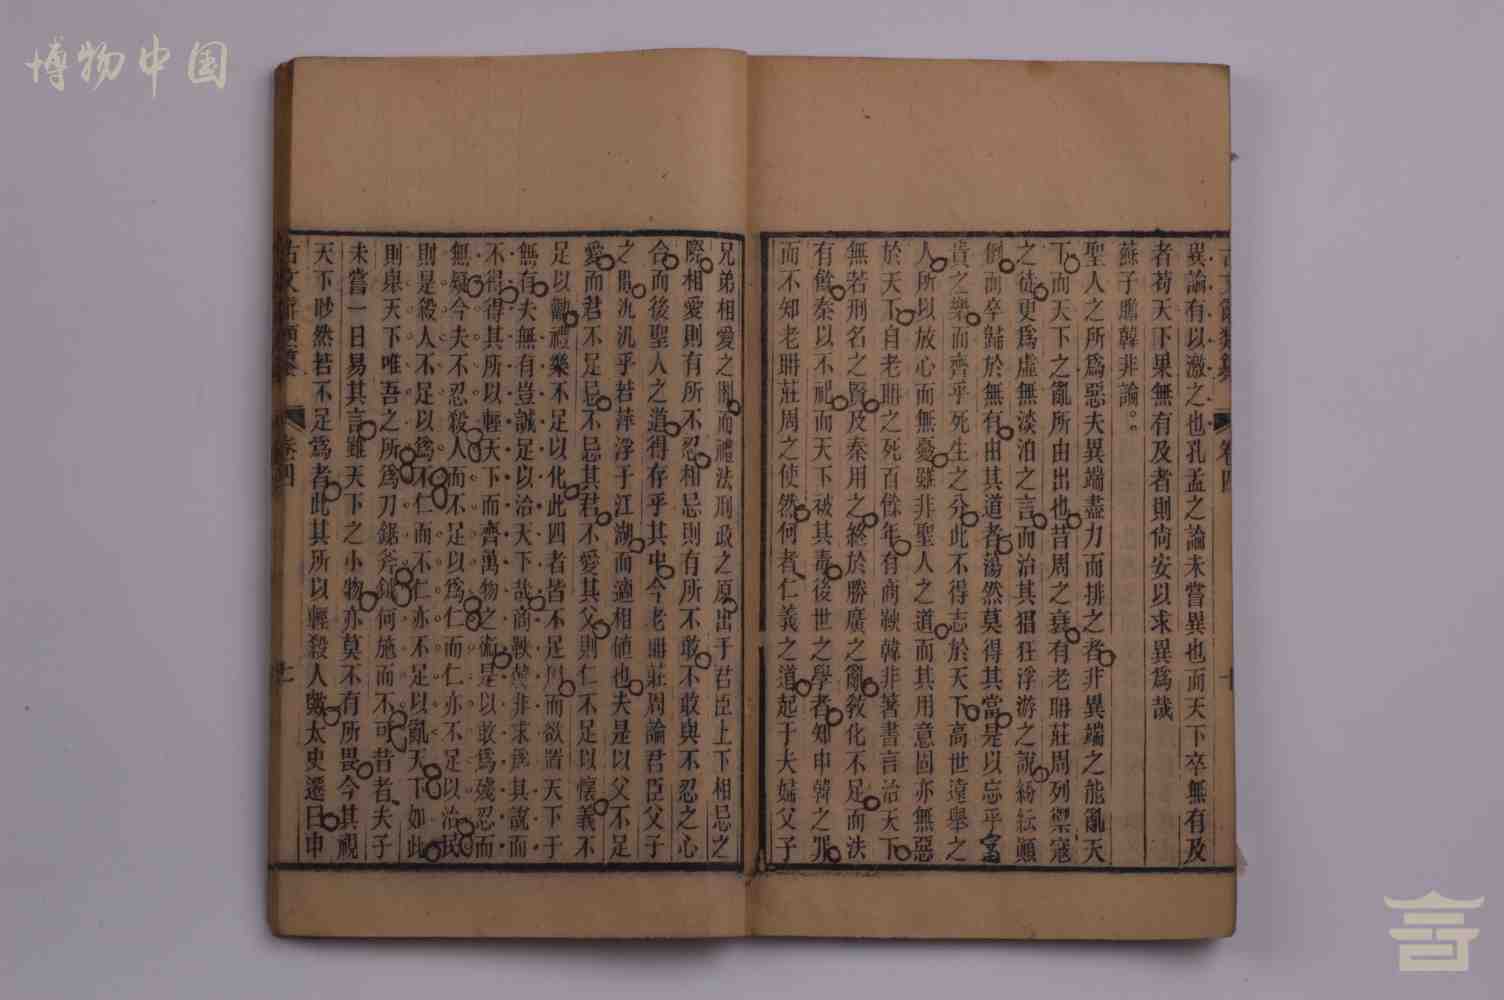 博物中国
異論有以激之也孔孟之論未嘗異也而天下卒無有及
者苟天下果無有及者則尙安以求異爲哉
蘇子瞻韓非論
聖人之所爲惡夫異端盡力而排之者非異端之能亂天
下而天下之亂所由出也昔周之衰有老聃莊周列禦寇
之徒更爲虛無淡泊之言而治其猖狂浮游之說紛紜顚
倒而卒歸於無有由其道者蕩然莫得其當是以忘乎富
貴之樂而齊乎死生之分此不得志於天下高世遠舉之
人所以放心而無憂雖非聖人之道而其用意固亦無惡
於天下自老聃之死百餘年有商鞅韓非著書言治天下
無若刑名之賢及秦用之終於勝廣之亂敎化不足而法
有餘秦以不祀而天下被其毒後世之學者知申韓之罪
而不知老聃莊周之使然何者仁義之道起于夫婦父子
兄弟相愛之間而禮法刑政之原出于君臣上下相忌之
際相愛則有所不忍相忌則有所不敢不敢與不忍之心
合而後聖人之道得存乎其中今老聃莊周論君臣父子
之間汎汎乎若萍浮于江湖而適相値也夫是以父不足
愛而君不足忌不忌其君不愛其父則仁不足以懷義不
足以勸禮樂不足以化此四者皆不足用而欲置天下于
無有夫無有豈誠足以治天下哉商鞅韓非求爲其說而
不得得其所以輕天下而齊萬物之術是以敢爲殘忍而
無疑今夫不忍殺人而不足以爲仁而仁亦不足以治民
則是殺人不足以爲不仁而不仁亦不足以亂天下如此
則舉天下唯吾之所爲刀鋸斧鉞何施而不可昔者夫子
未嘗一日易其言雖天下之小物亦莫不有所畏今其視
天下眇然若不足爲者此其所以輕殺人歟太史遷曰申
卷四